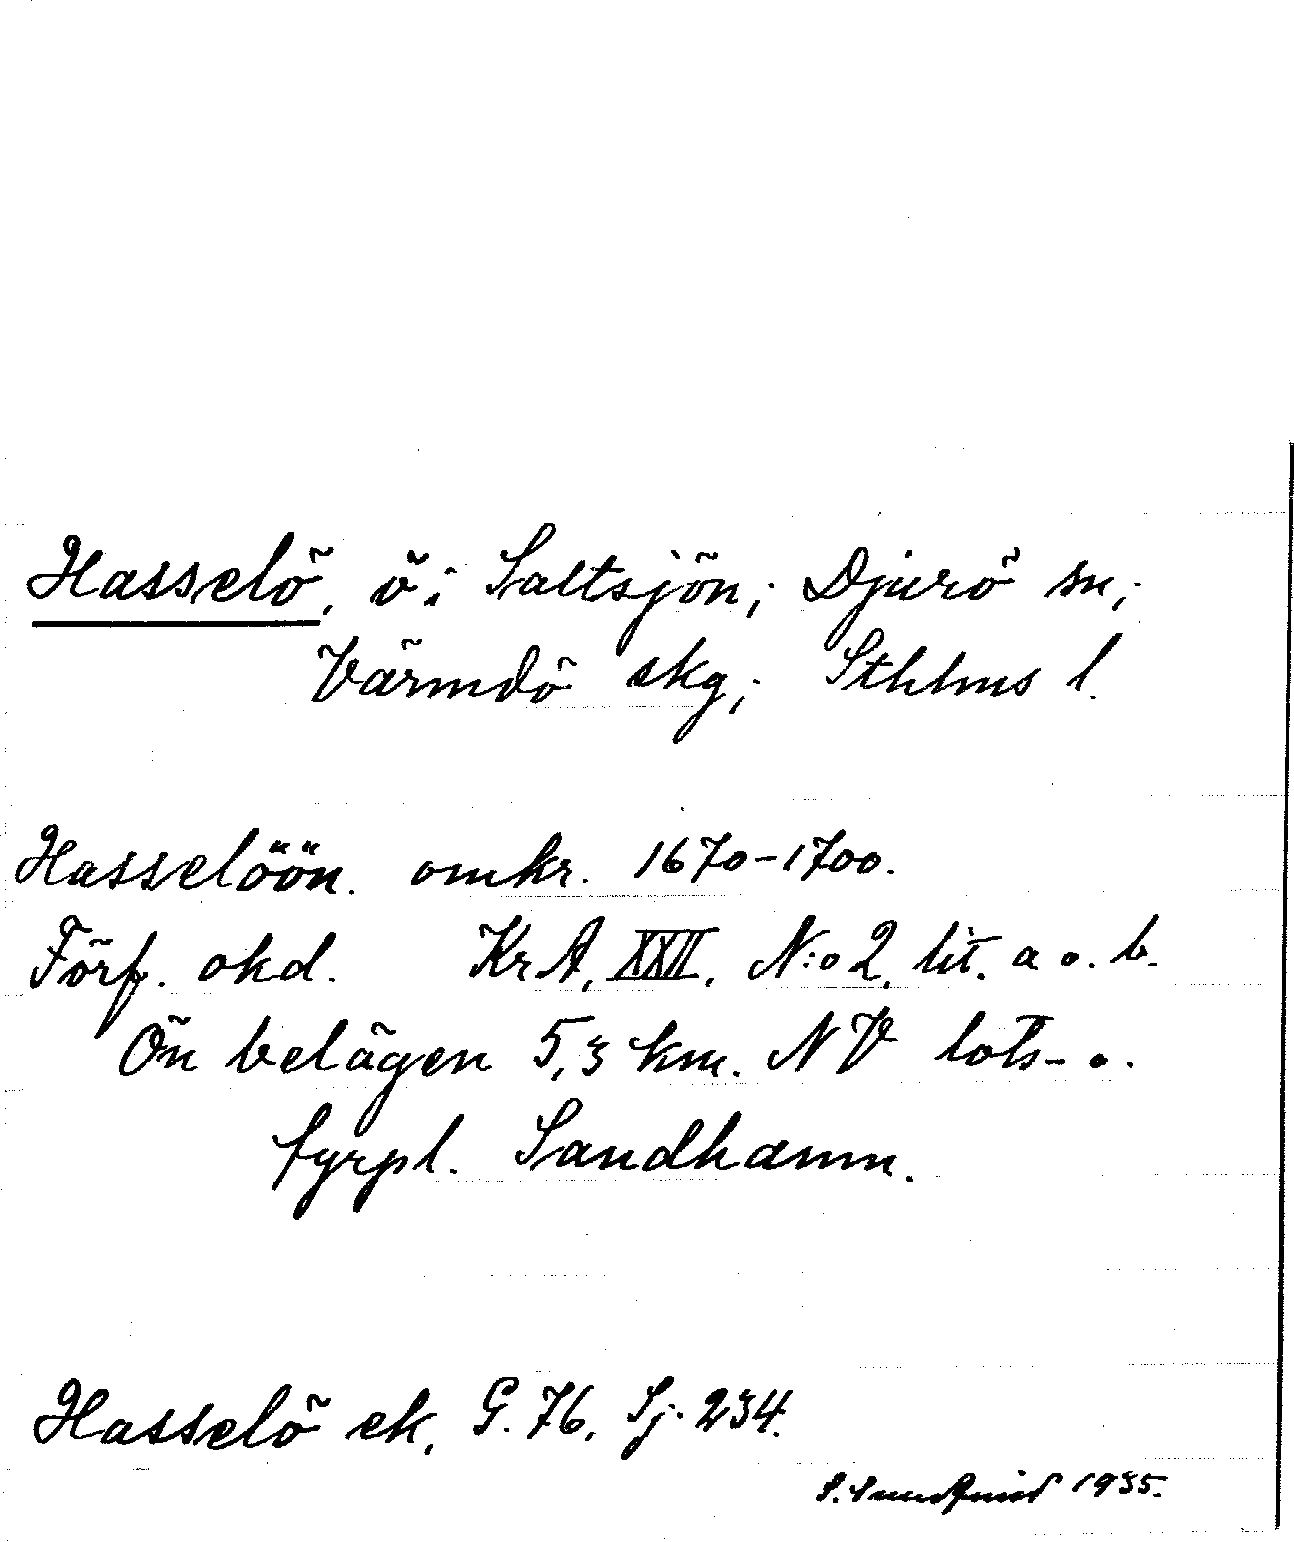 Hasselö, ö i Saltsjön; Djurö sn;
Värmdö skg; Sthlms l.
Hasselöön. omkr. 1670-1700.
Förf. okd. KrA, XXII, N:o 2, lit. a o. b.
Ön belägen 5,3 km. NV lots- o.
fyrpl. Sandhamn.
Hasselö ek, G. 76, Sj. 234.
S. Sundquist 1935.